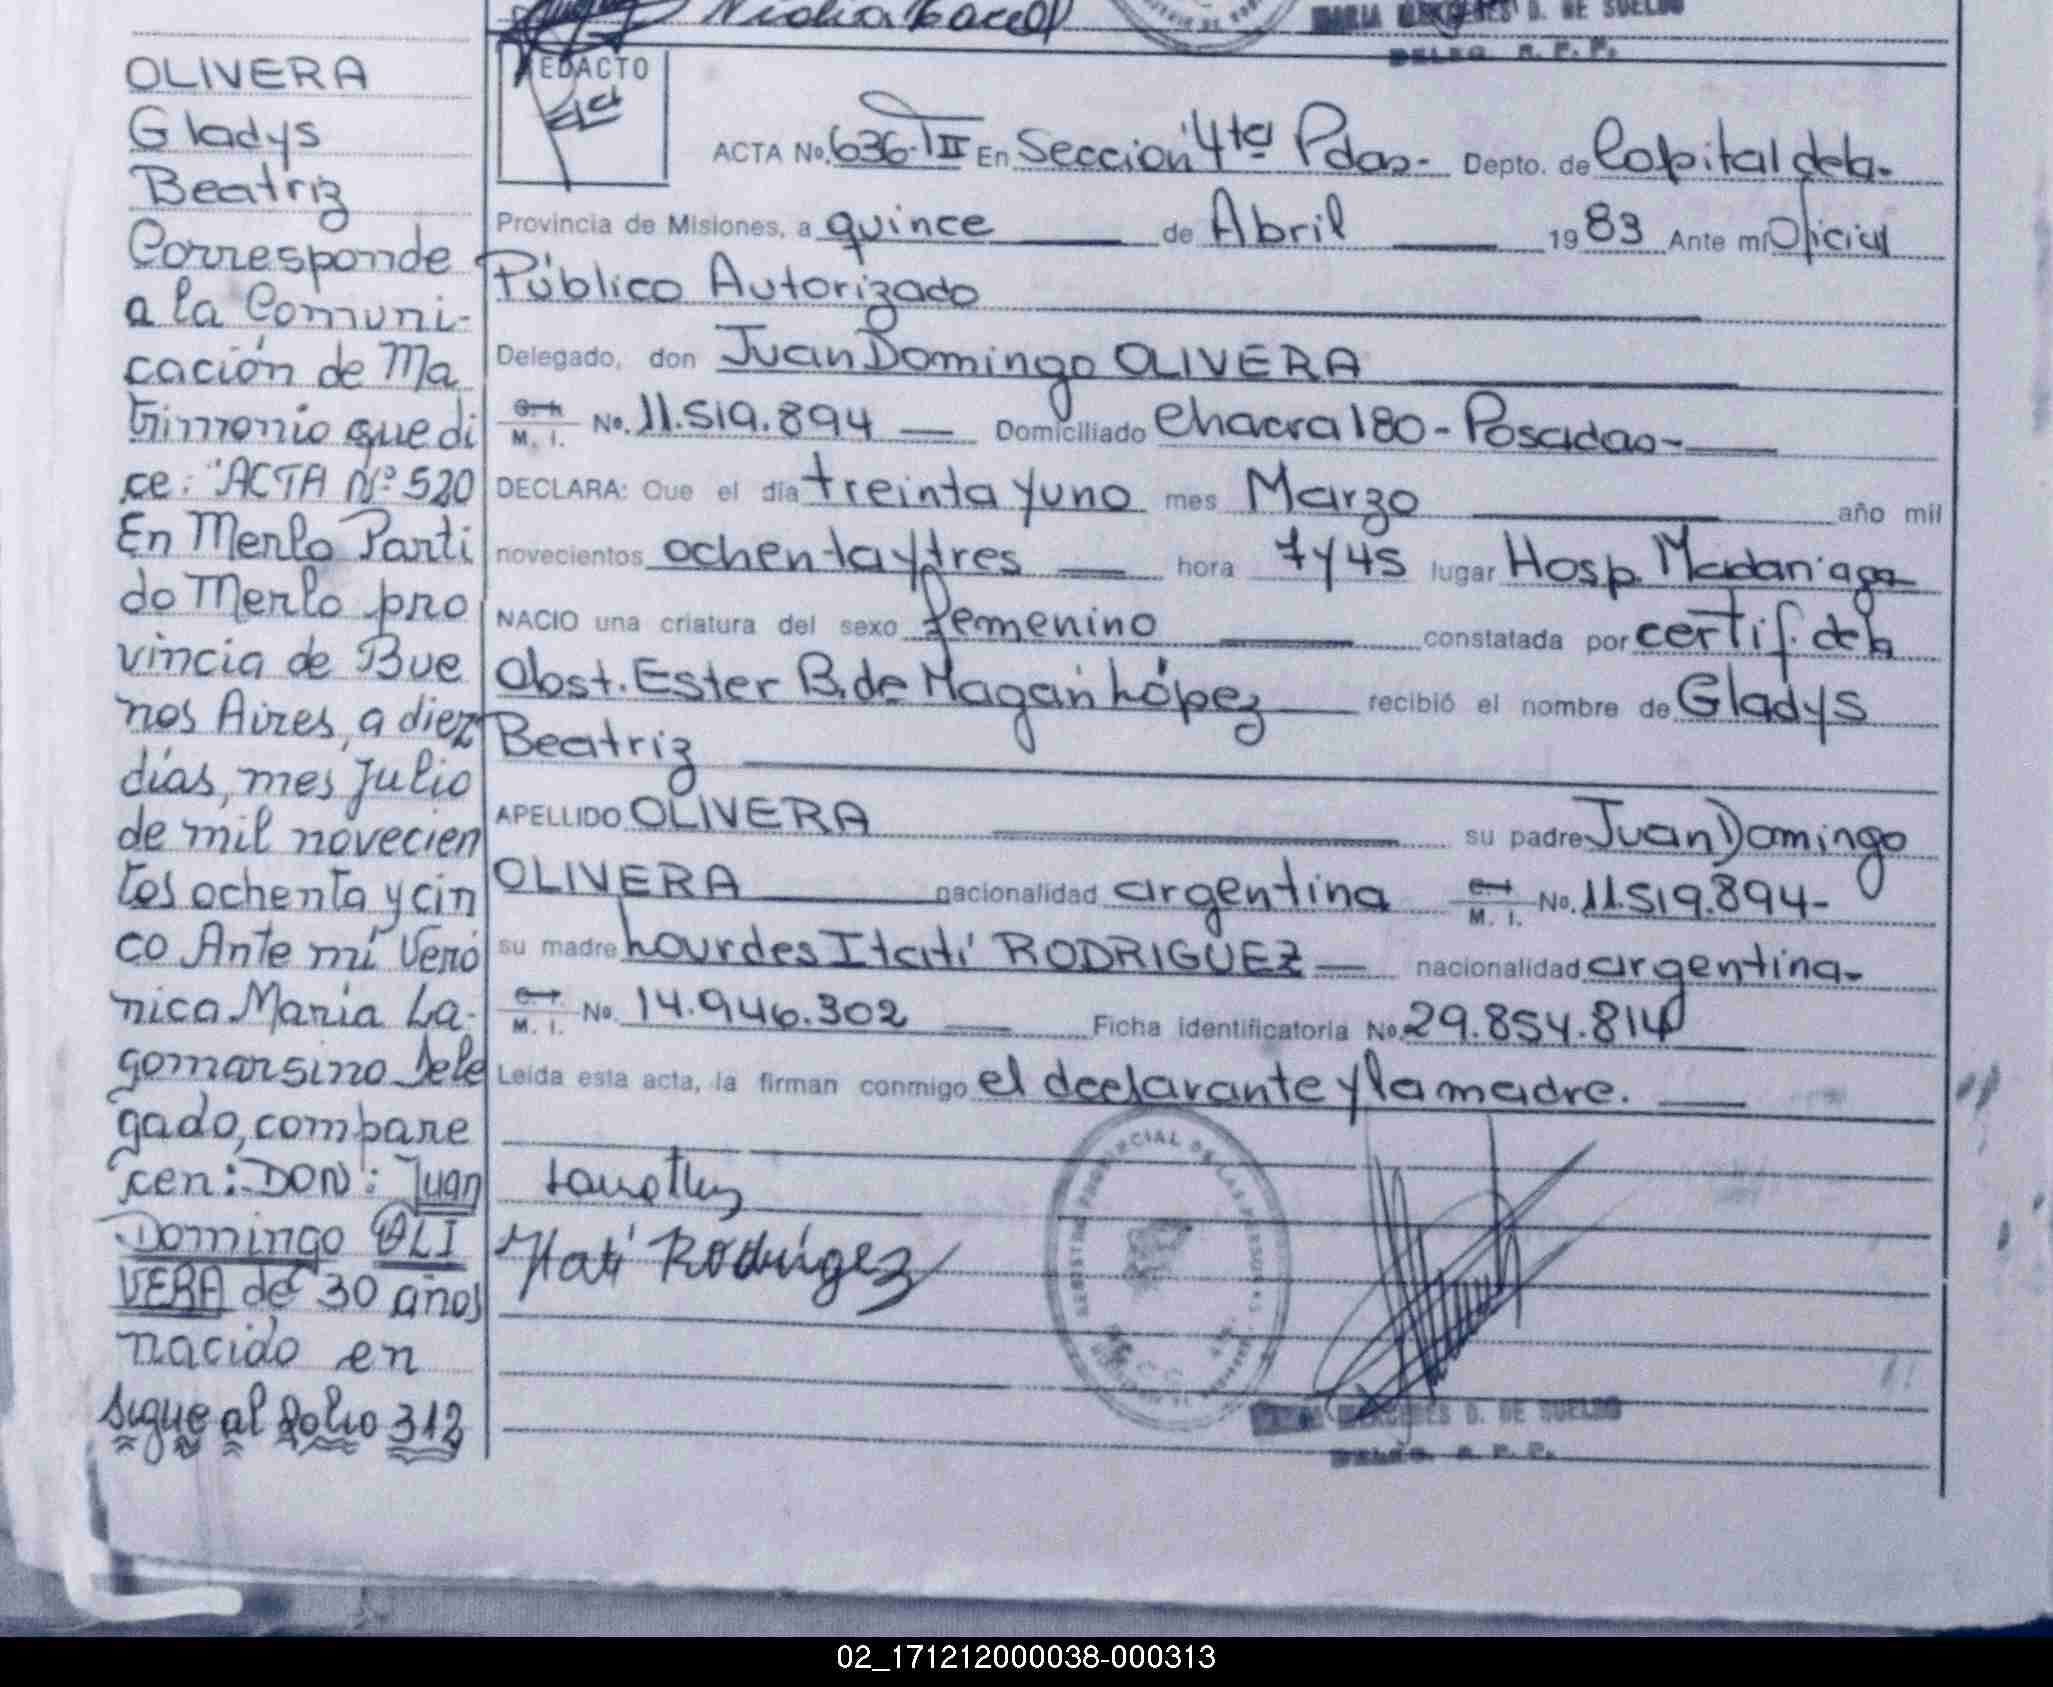 OLIVERA
Gladys
Beatriz
Corresponde
a la Comuni-
cación de Ma
trimonio que di
ce: "ACTA Nº 520
En Merlo Parti
do Merlo pro
vincia de Bue
nos Aires, a diez
días, mes Julio
de mil novecien
tos ochenta y cin
co Ante mí Veró
nica María La-
gomarsino Dele
gado, compare
cen: DON: Juan
Domingo OLI
VERA de 30 años
nacido en
sigue al folio 312
MARIA MERCEDES D. DE SUELDO
DELEG. R. P. P.
REDACTO
ACTA No. 636-TII En Seccion 4ta Pdas- Depto. de Capital de la-
Provincia de Misiones, a quince de Abril 1983 Ante mí Oficial
Público Autorizado
Delegado, don Juan Domingo OLIVERA
M. I. No. 11.519.894 Domiciliado Chacra 180 - Posadas-
DECLARA: Que el día treinta y uno mes Marzo año mil
novecientos ochenta y tres hora 7 y 45 lugar Hosp. Madariaga
NACIO una criatura del sexo femenino constatada por certif. de la
Obst. Ester B. de Magan López recibió el nombre de Gladys
Beatriz
APELLIDO OLIVERA su padre Juan Domingo
OLIVERA nacionalidad argentina M. I. No. 11.519.894-
su madre Lourdes Itatí RODRIGUEZ nacionalidad argentina-
M. I. No. 14.946.302 Ficha identificatoria No. 29.854.814
Leída esta acta, la firman conmigo el declarante y la madre.
Itatí Rodrígez
MERCEDES D. DE SUELDO
DELEG. R. P. P.
02_171212000038-000313